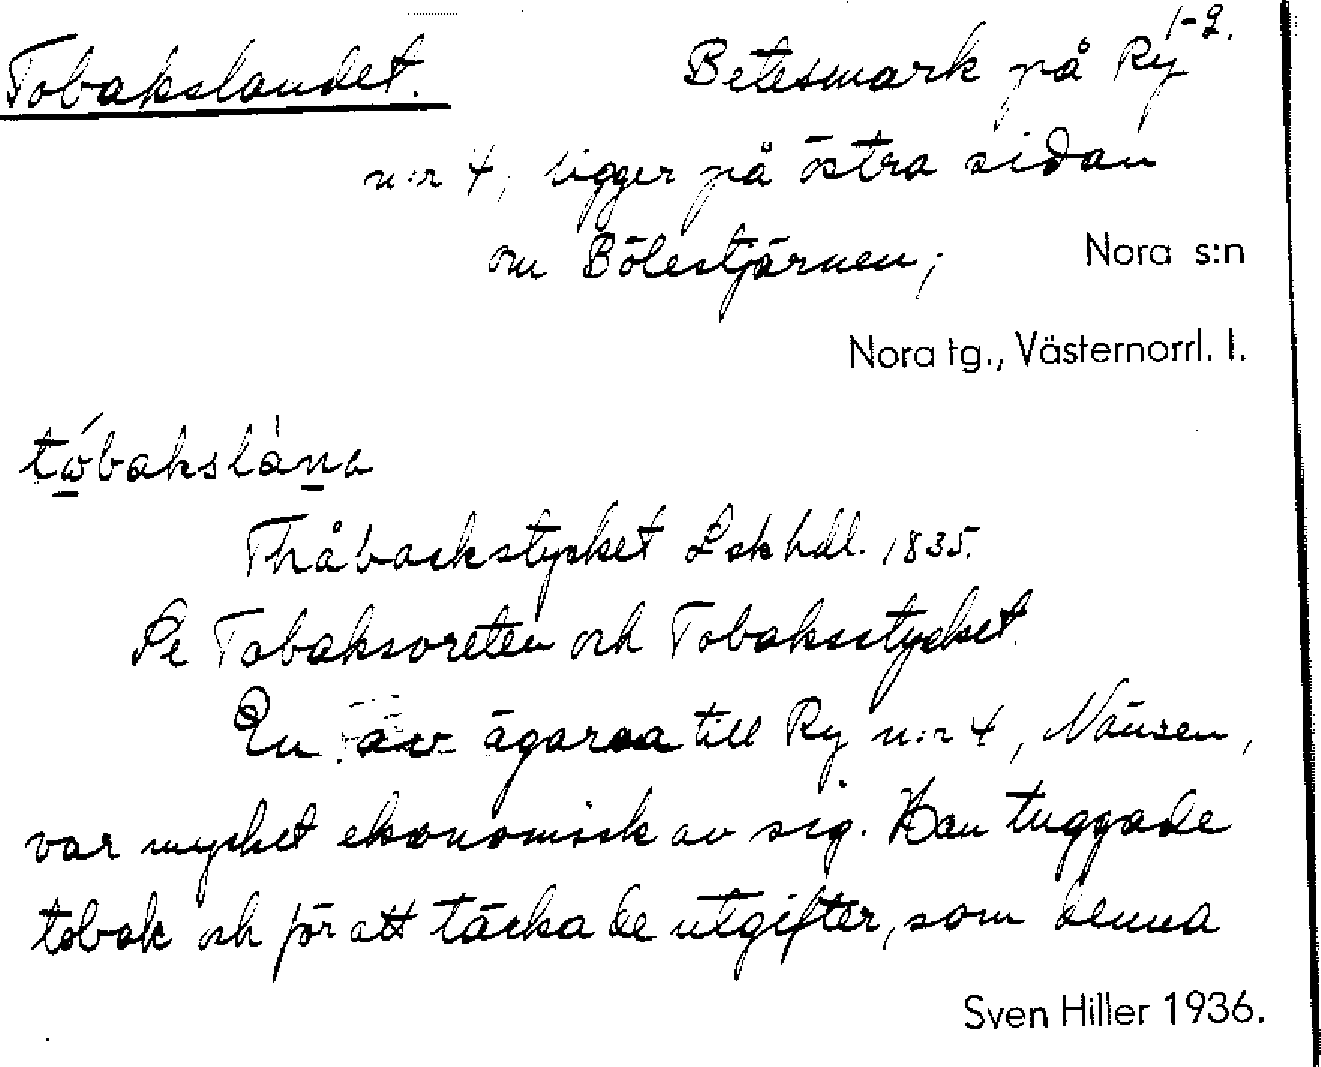 1-2.
Tobakslandet. Betesmark på Ry
n:r 4, ligger på östra sidan
om Bölestjärnen; Nora s:n
Nora tg., Västernorrl. l.
tóbakslàna
Thåbackstycket Lskhdl. 1835.
Se Tobaksoreten och Tobaksstycket.
En av ägarna till Ry n:r 4, Näusen,
var mycket ekonomisk av sig. Han tuggade
tobak och för att täcka de utgifter, som denna
Sven Hiller 1936.